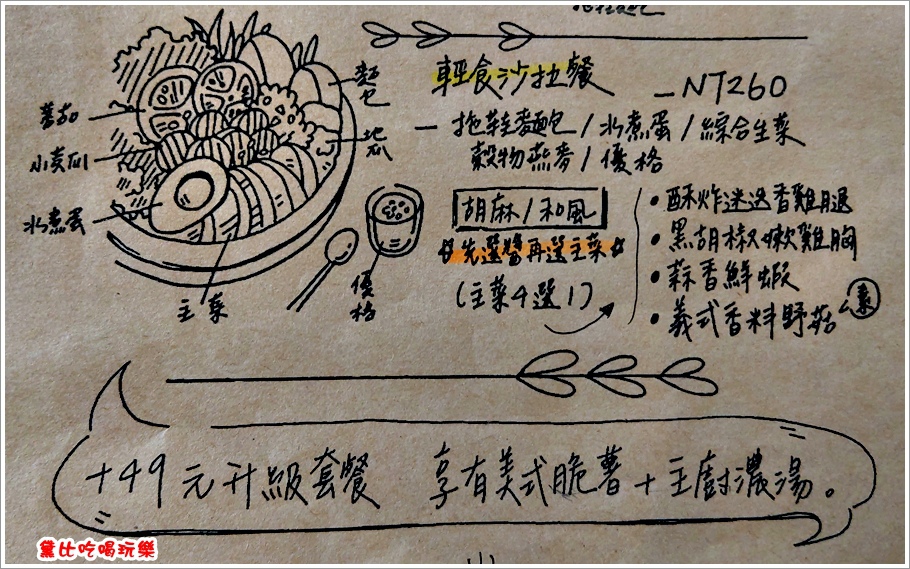 輕食沙拉餐 —NT260
— 拖鞋麵包/水煮蛋/綜合生菜
穀物燕麥/優格
胡麻/和風
先選醬再選主菜
(主菜4選1)
•酥炸迷迭香雞腿
•黑胡椒嫩雞胸
•蒜香鮮蝦
•義式香料野菇 素
麵包
蕃茄
地瓜
小黃瓜
水煮蛋
主菜
優格
+49元升級套餐 享有美式脆薯+主廚濃湯。
黛比吃喝玩樂